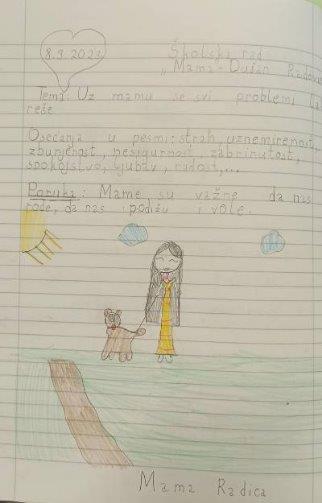 8.3.2023
Školski rad
„Mama- Dušan Radov
Tema: Uz mamu se svi problemi
reše
Osećanja u pesmi: strah, uznemirenost,
zbunjenost, nesigurnost, zabrinutost,
spokojstvo, ljubav, radost,...
Poruka: Mame su važne da nas
rode, da nas podižu i vole.
Mama Radica